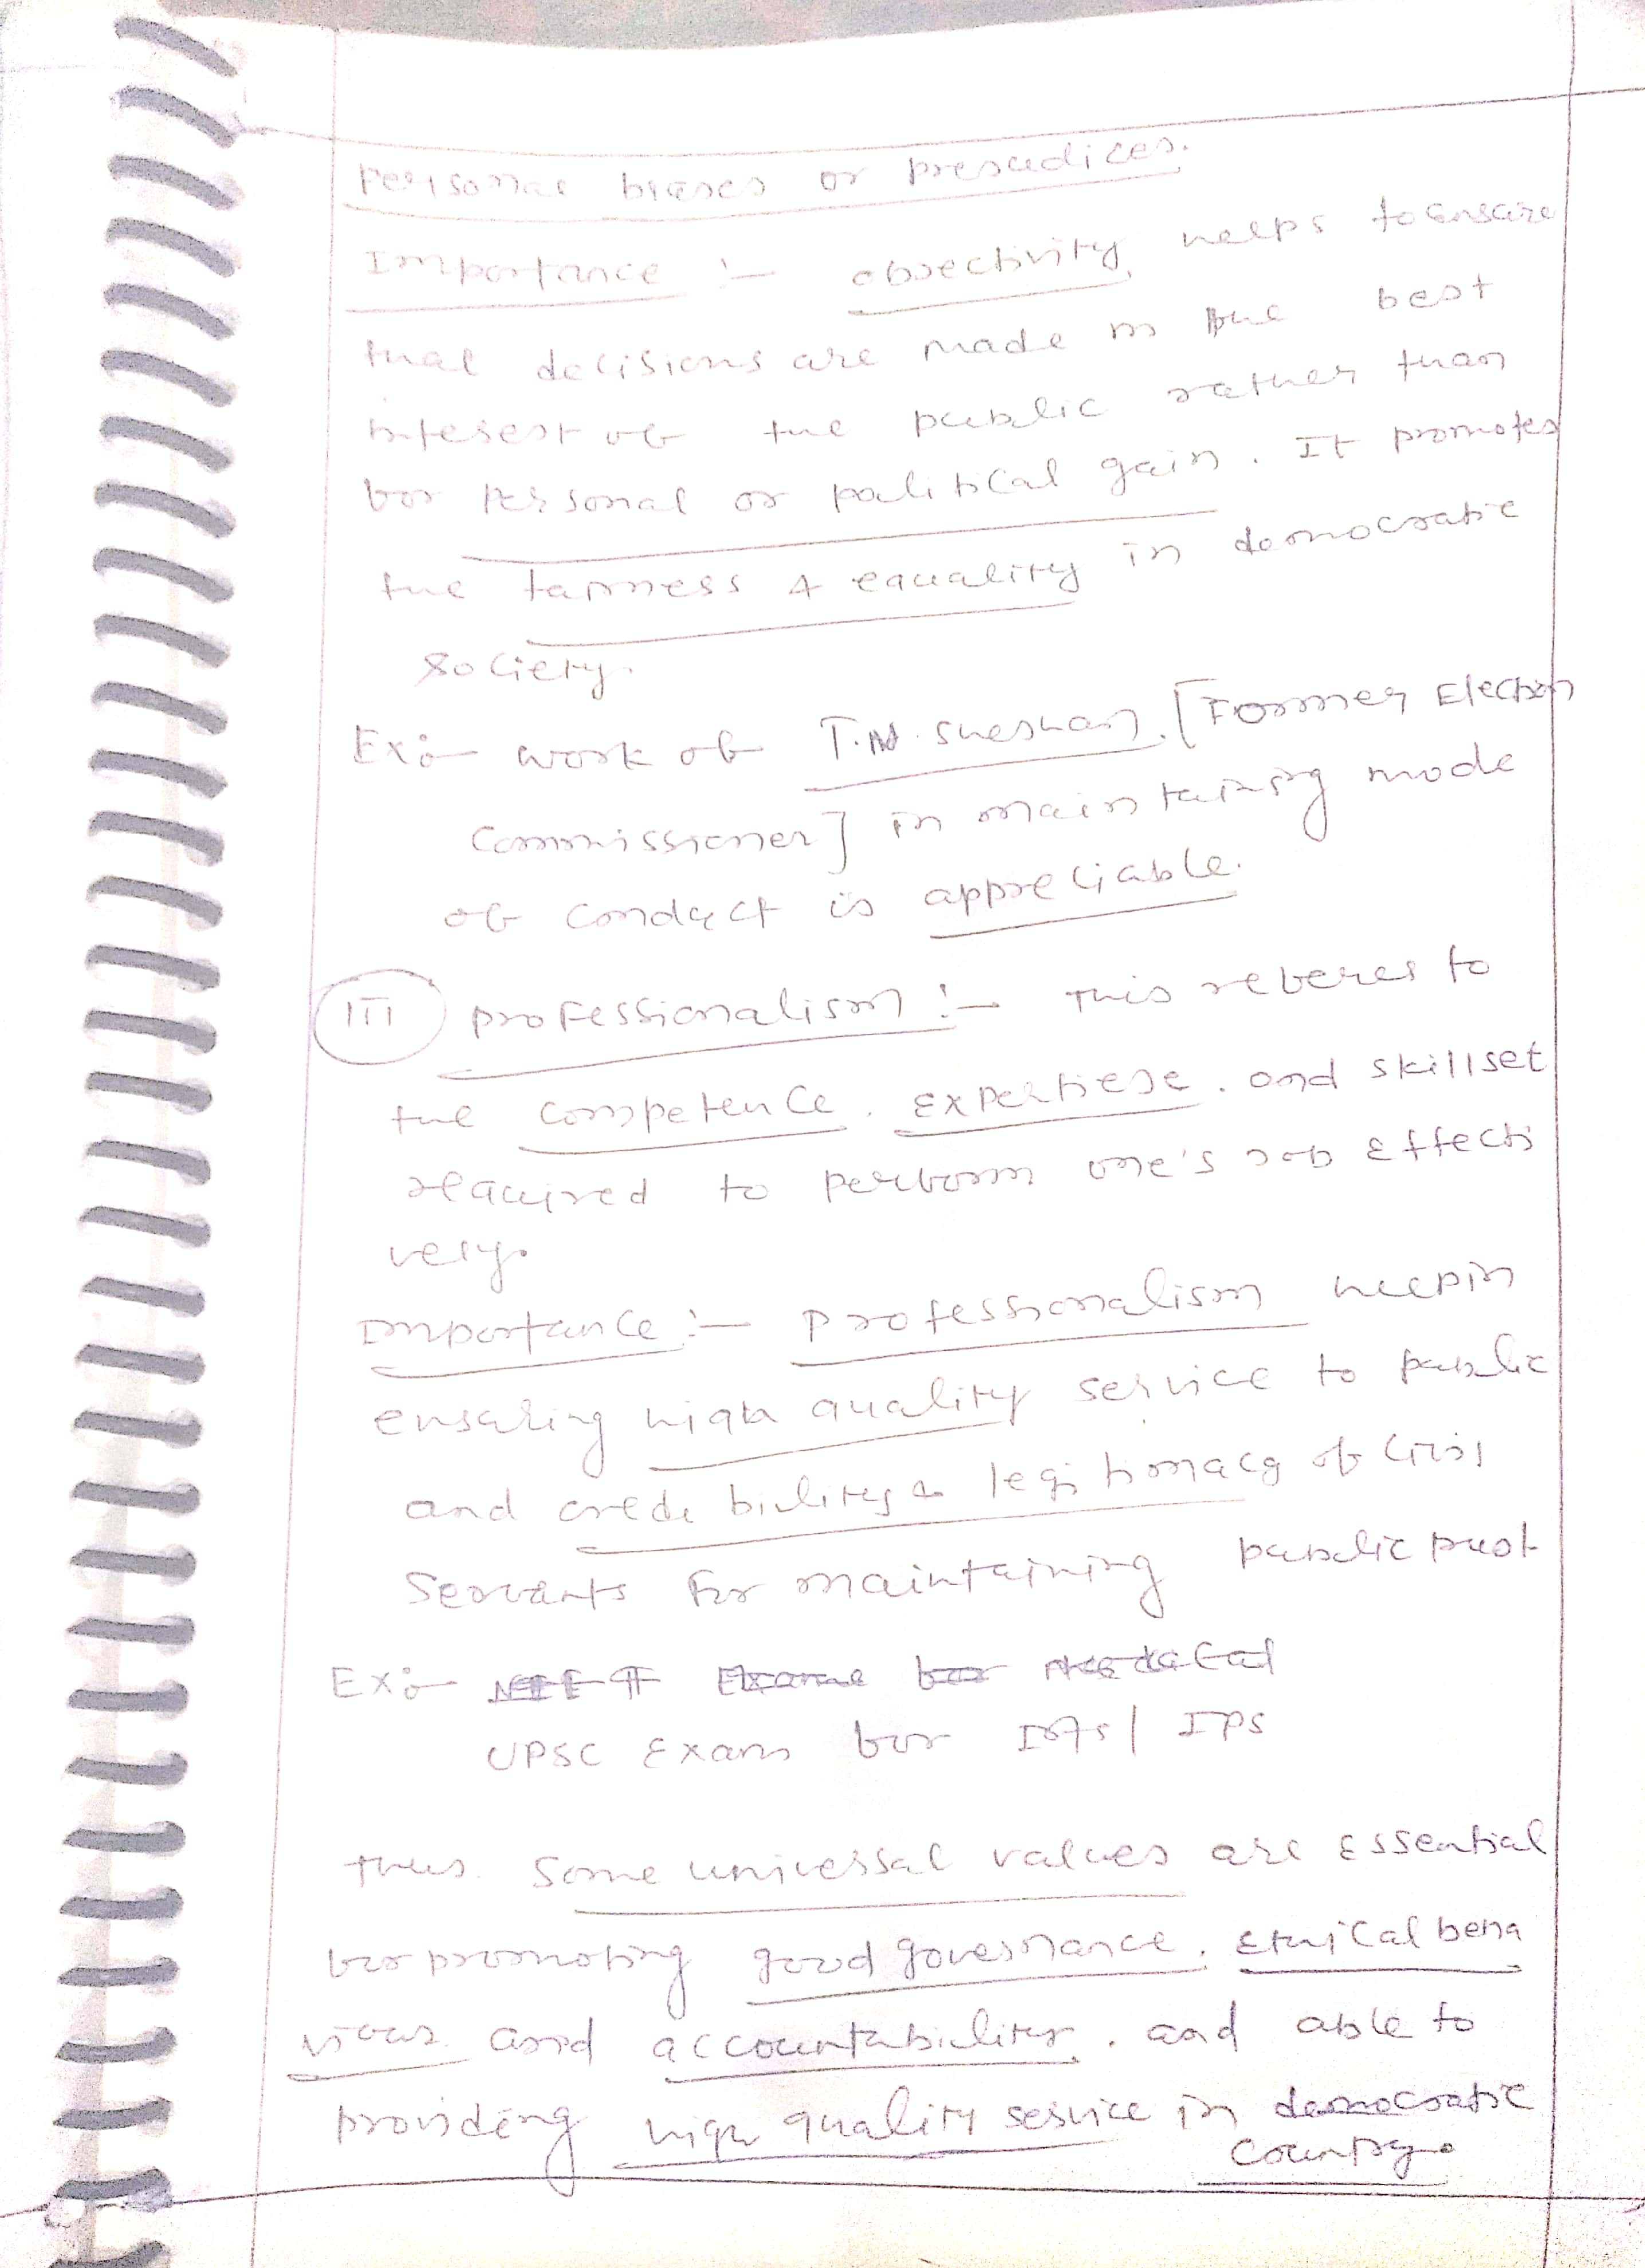 personal biases or presudices.
Importance :- obsectivity helps to ensure
that decisions are made in the best
interest of the public rather than
for personal or political gain. It promotes
the fairness & equality in democratic
society.
Ex:- work of T.N. Sheshan. [Former Election
Commissioner] in maintaining mode
of conduct is appreciable.
III professionalism :- This referes to
the competence, expertiese, and skillset
required to perform one's job effecti
vely.
Importance :- professionalism helpin
ensuring high quality service to public
and credibility & legitimacy of Civil
Servants for maintaining public trust
Ex:-
UPSC Exam for IAS/ IPS
thus. Some universal values are essential
for promoting good governance, Ethical beha
viour and accountability, and able to
providing high quality service in democratic
country.